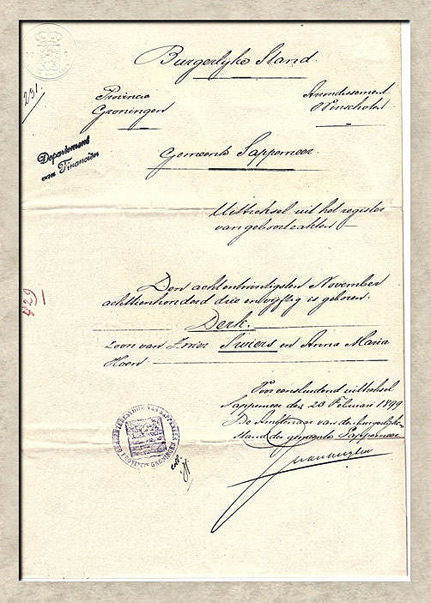 Burgerlijke Stand.
291.
Provincie
Groningen
Arrondissement
Winschoten
Departement
van Financiën
Gemeente Sappemeer
Uittreksel uit het register
van geboorteakten
Den achtentwintigsten November
achttienhonderd drie en vijftig is geboren.
Derk.
zoon van Siviers en Anna Maria
429
Voor eensluidend uittreksel
Sappemeer den 20 Februari 1899
De Ambtenaar van den burgerlijken
Stand der gemeente Sappemeer